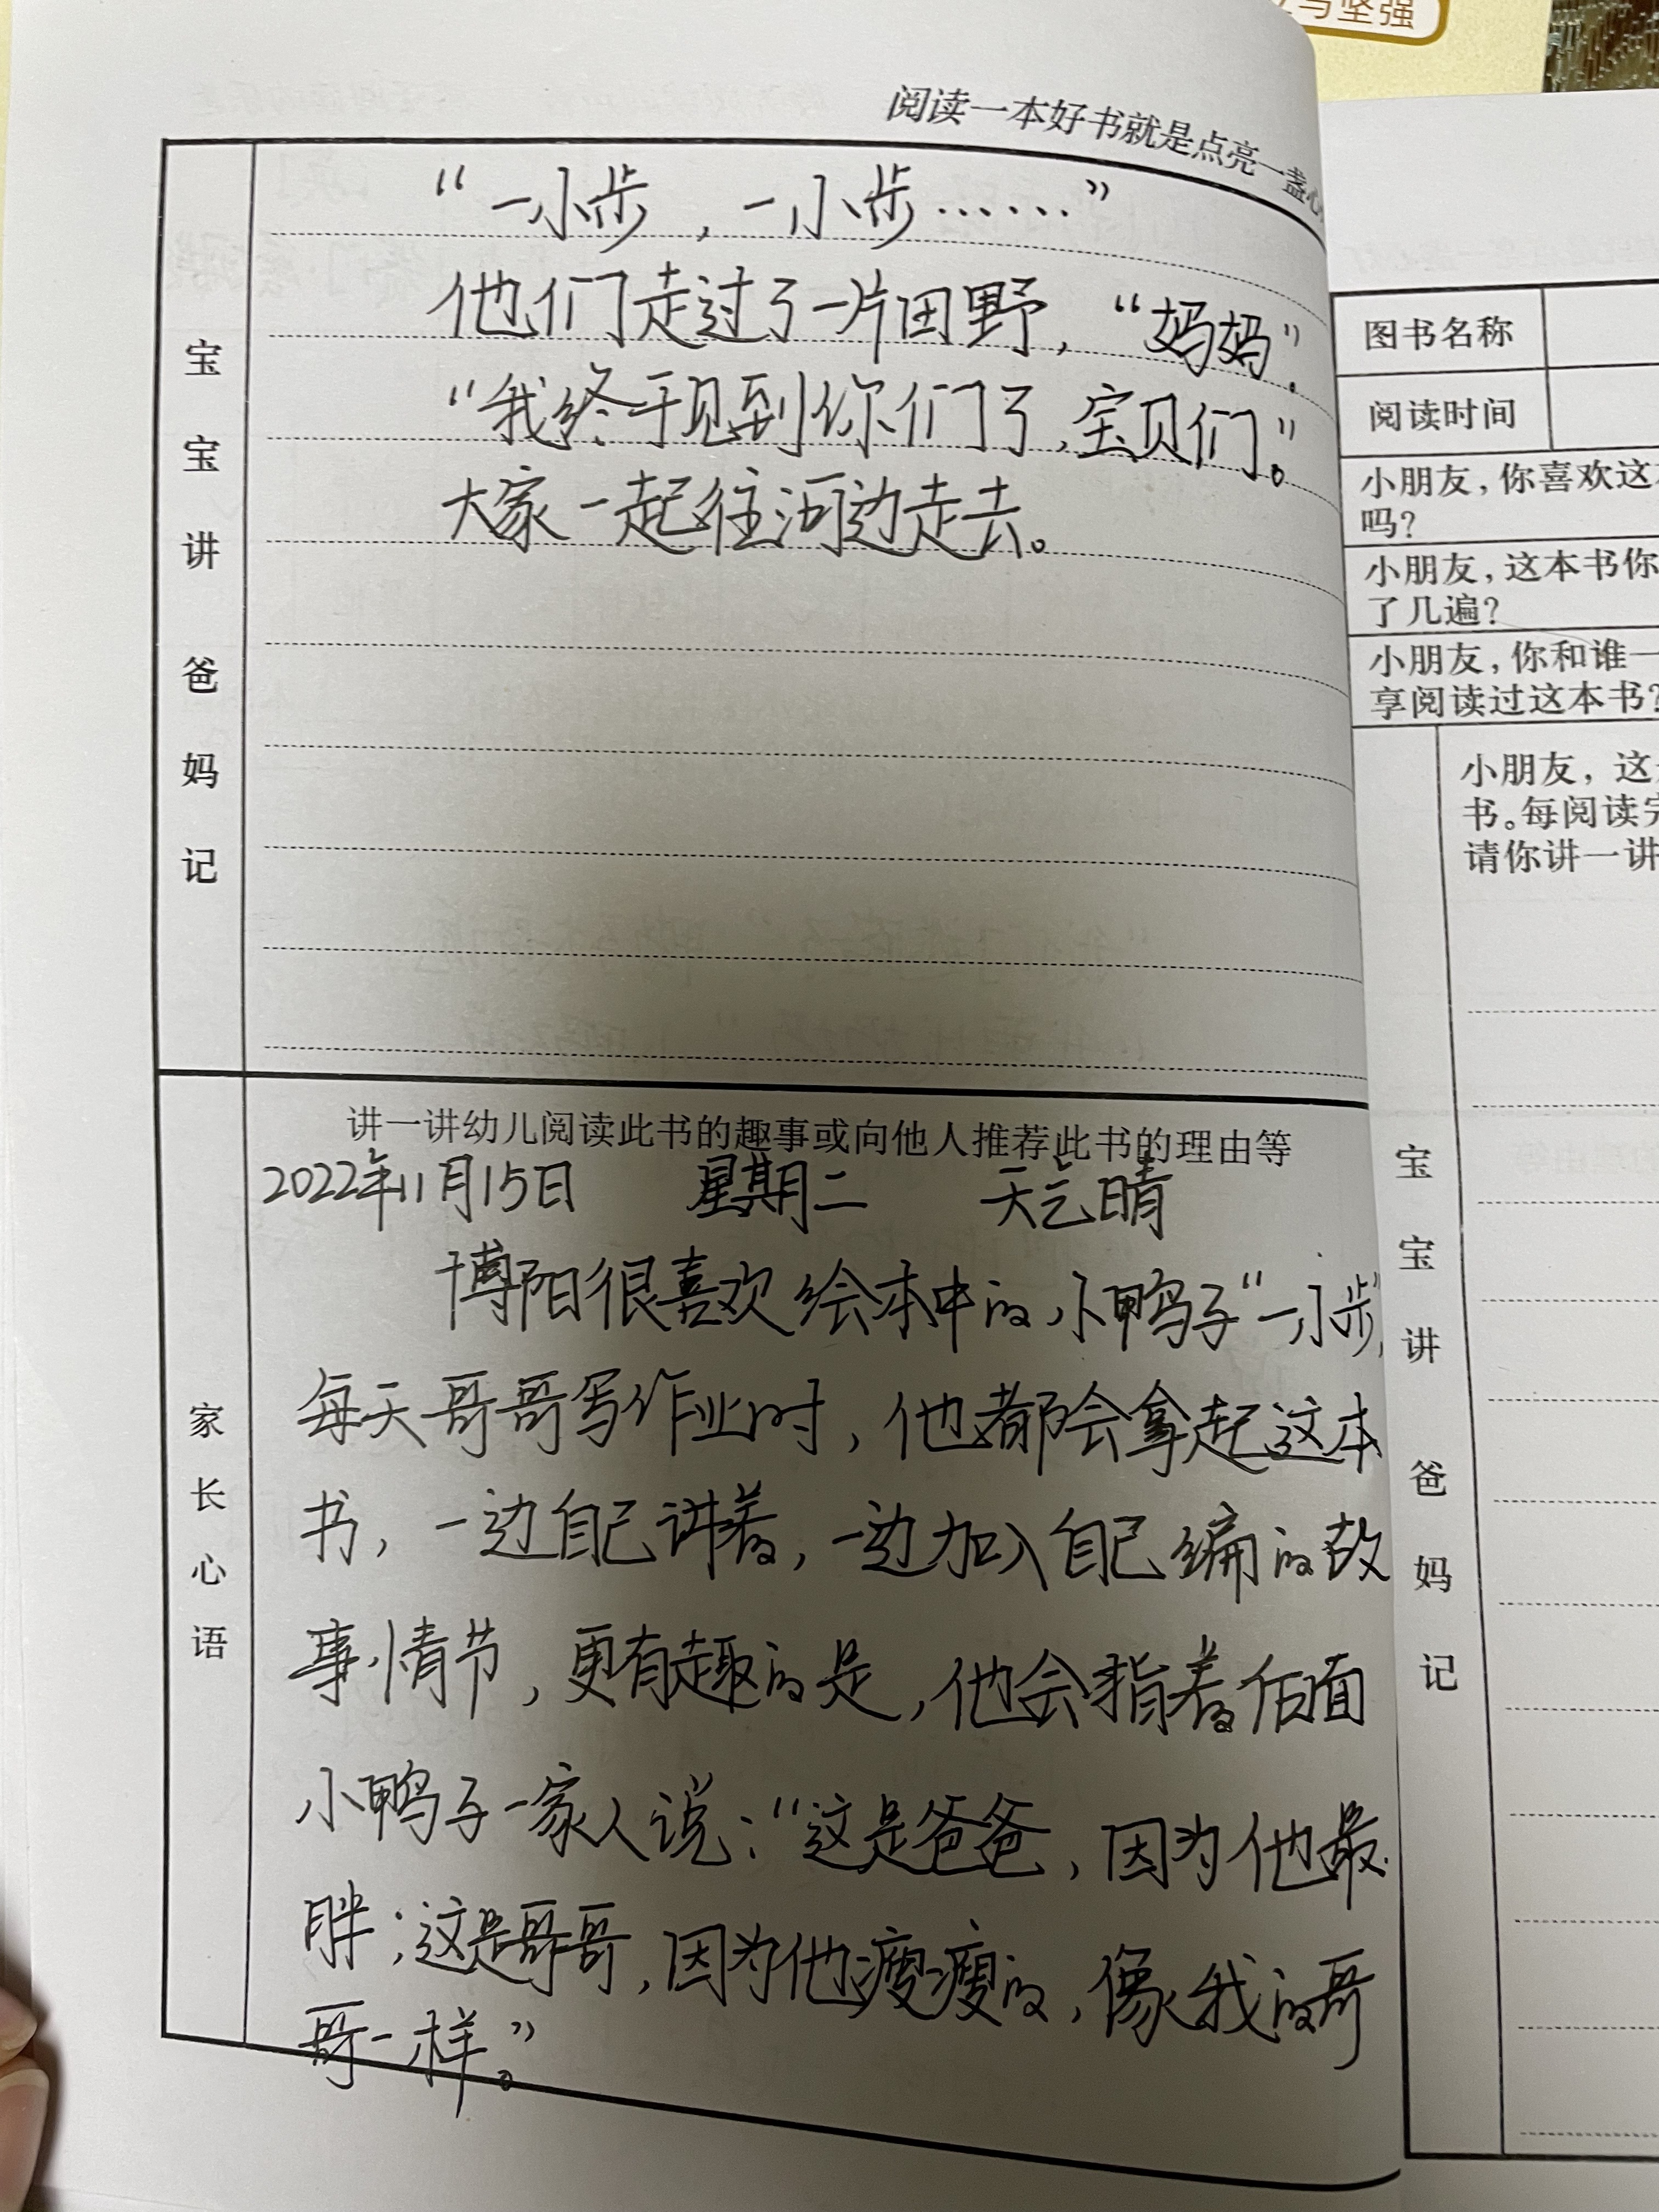 与坚强
阅读一本好书就是点亮一盏心
宝宝讲爸妈记
“一小步，一小步……”
他们走过了一片田野，“妈妈”.
“我终于见到你们了,宝贝们”。
大家一起往河边走去。
家长心语
讲一讲幼儿阅读此书的趣事或向他人推荐此书的理由等
2022年11月15日 星期二 天气晴
博阳很喜欢绘本中的小鸭子“一小步”,
每天哥哥写作业时，他都会拿起这本
书，一边自己讲着，一边加入自己编的故
事情节，更有趣的是，他会指着后面
小鸭子一家人说：“这是爸爸，因为他最
胖；这是哥哥，因为他瘦瘦的，像我的哥
哥一样。”
图书名称
阅读时间
小朋友，你喜欢这
吗？
小朋友，这本书你
了几遍？
小朋友，你和谁一
享阅读过这本书？
小朋友，这
书。每阅读完
请你讲一讲
宝宝讲爸妈记